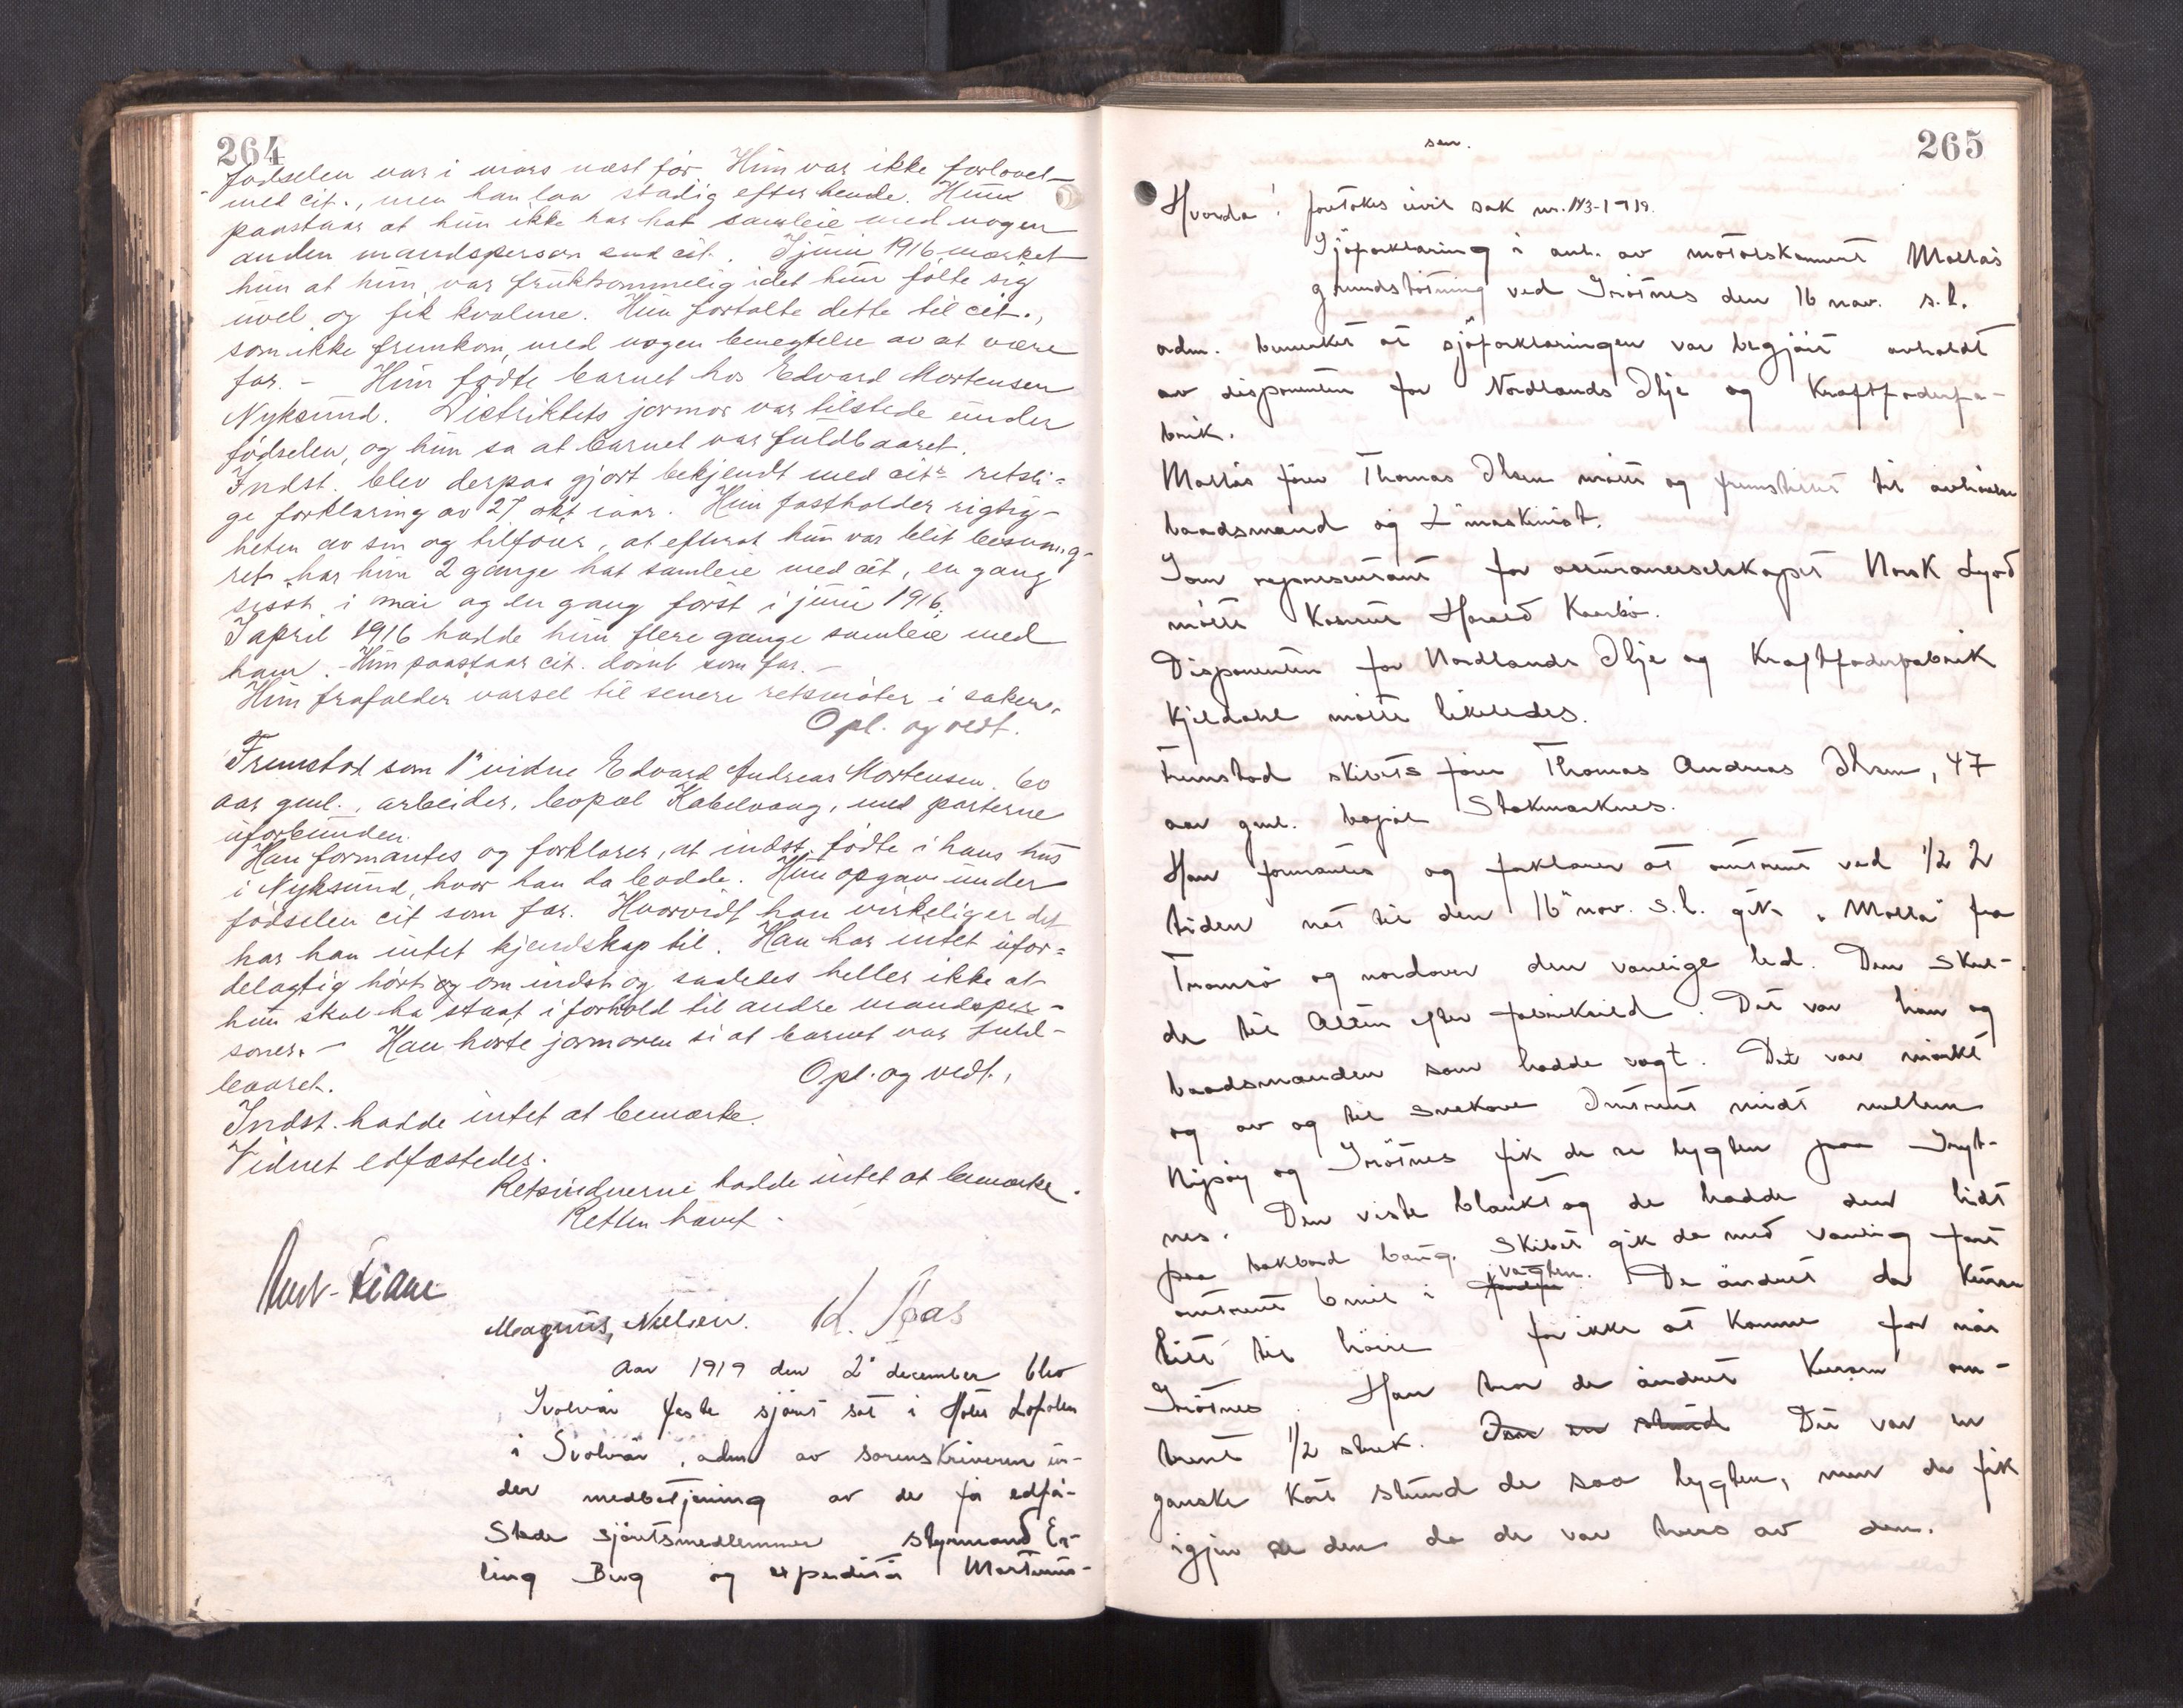 264
fødselen var i mars næst før. Hun var ikke forlovet
med cit., men han laa stadig efter hende. Hun
paastaar at hun ikke har hat samleie med nogen
anden mandsperson end cit. I juni 1916 merket
hun at hun var fruktsommelig idet hun følte sig
uvel og fik kvalme. Hun fortalte dette til cit.,
som ikke fremkom med nogen benegtelse av at være
far. - Hun fødte barnet hos Edvard Mortensen
Nyksund. Distriktets jormor var tilstede under
fødselen, og hun sa at barnet var fuldbaaret.
Indst. blev derpaa gjort bekjendt med cits retsli-
ge forklaring av 27 okt iaar. Hun fastholder rigtig-
heten av sin og tilføier, at efterat hun var blit besvang-
ret har hun 2 gange hat samleie med cit, en gang
sisst i mai og en gang først i juni 1916.
I april 1916 hadde hun flere gange samleie med
ham. - Hun paastaar cit. dømt som far. -
Hun frafalder varsel til senere retsmøter i saken.
Opl. og vedt.
Fremstod som 1ste vidne Edvard Andreas Mortensen. 60
aar gml., arbeider, bopæl Kabelvaag, med parterne
uforbunden.
Han formantes og forklarer, at indst. fødte i hans hus
i Nyksund, hvor han da bodde. Hun opgav under
fødselen cit som far. Hvorvidt han virkelig er det
har han intet kjendskap til. Han har intet ufor-
delagtig hørt og om indst og saaledes heller ikke at
hun skal ha staat i forhold til andre mandsper-
soner. - Han hørte jormoren si at barnet var fuld-
baaret. Opl. og vedt.,
Indst. hadde intet at bemerke.
Vidnet edfæstedes.
Retsvidnerne hadde intet at bemerke.
Retten hævet.
Magnus Nilsen. K. Aas
Aar 1919 den 2' december blev
Svolvær faste sjøret sat i Hotel Lofoten
i Svolvær, adm av sorenskriveren un-
der medbetjening av de før edfæ-
stede sjøretsmedlemmer styrmand Er-
ling Berg og expeditør Martinus-
265
sen.
Hvorda! foretokes civil sak nr. 113-1919.
Sjøforklaring i anl. av motorskonnert Mollas
grundstøtning ved Snøtnes den 16 nov. s.l.
adm. bemerket at sjøforklaringen var begjært avholdt
av disponenten for Nordlands Olje og Kraftfoderfa-
brik.
Mollas fører Thomas Olsen møtte og fremstillet til avhørelse
baadsmand og 2' maskinist.
Som representant for assuranceselskapet Norsk Lyod
møtte Konsul Harald Kaarbø.
Disponenten for Nordlands Olje og Kraftfoderfabrik
Kjeldahl møtte likeledes.
Fremstod skibets fører Thomas Andreas Olsen, 47
aar gml. bopæl Stokmarknes.
Han formantes og forklarer at omtrent ved 1/2 2
tiden nat til den 16' nov. s.l. gik "Molla" fra
Tromsø og nordover den vanlige led. Den skul-
de til Alten efter fabriksild. Det var han og
baadsmanden som hadde vagt. Det var mørkt
og av og til snekave Omtrent midt mellem
Nipøy og Snøtnes fik de se lygten paa Snøt-
nes. Den viste blankt og de hadde den lidt
paa bakbord baug. Skibet gik da med vanlig fart
omtrent 6 mil i vagten. De ændret da Kursen
litt til høire for ikke at komme for nær
Snøtnes. Han tror de ændret Kursen om-
trent 1/2 strek. Det var en
ganske kort stund de saa lygten, men de fik
igjen se den da de var tvers av den.